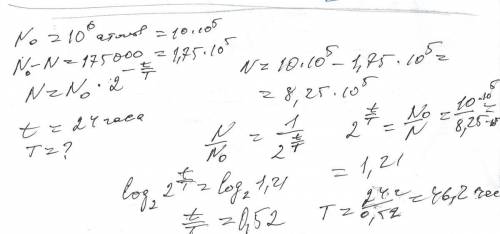 N₀ = 10⁶ атомов = 10·10⁵
N₀-N = 175000 = 1,75·10⁵
N = N₀·2^(-t/T)
N = 10·10⁵ - 1,75·10⁵ =
= 8,25·10⁵
t = 24 часа
T = ?
N/N₀ = 1/2^(t/T)
2^(t/T) = N₀/N = 10·10⁵/8,25·10⁵ =
= 1,21
log₂ 2^(t/T) = log₂ 1,21
t/T = 0,52
T = 24 ч/0,52 = 46,2 час